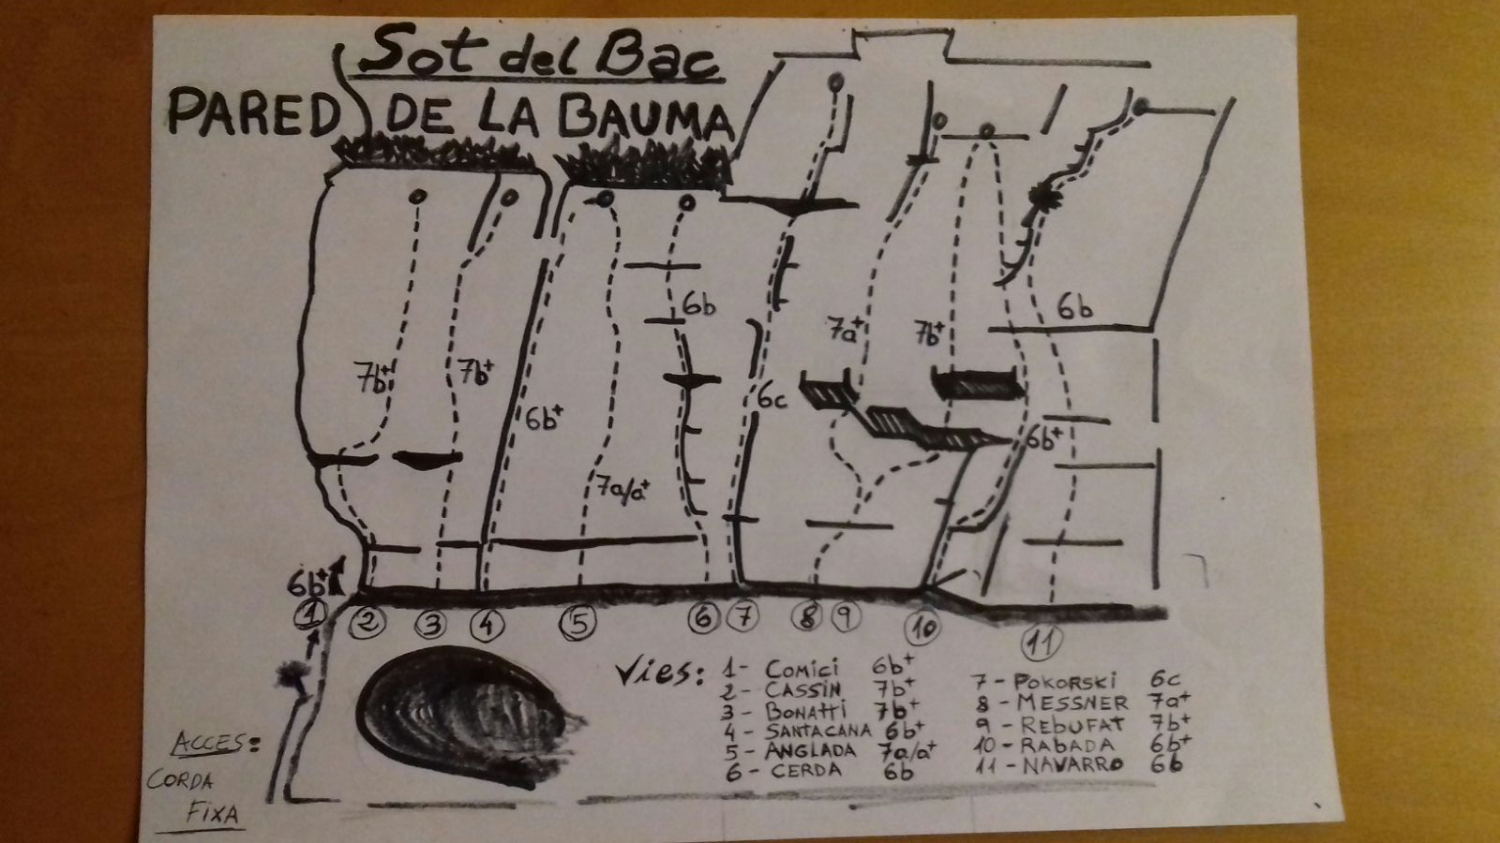 Sot del Bac
PARED DE LA BAUMA
6b
7a+
7b+
6b
7b+
7b+
6b+
6c
6b+
7a/a+
6b+
1 2 3 4 5 6 7 8 9 10 11
Vies:
1- Comici 6b+
2- CASSIN 7b+
3- BONATTI 7b+
4- SANTACANA 6b+
5- ANGLADA 7a/a+
6- CERDA 6b
7- POKORSKI 6c
8- MESSNER 7a+
9- REBUFAT 7b+
10- RABADA 6b+
11- NAVARRO 6b
ACCES:
CORDA
FIXA